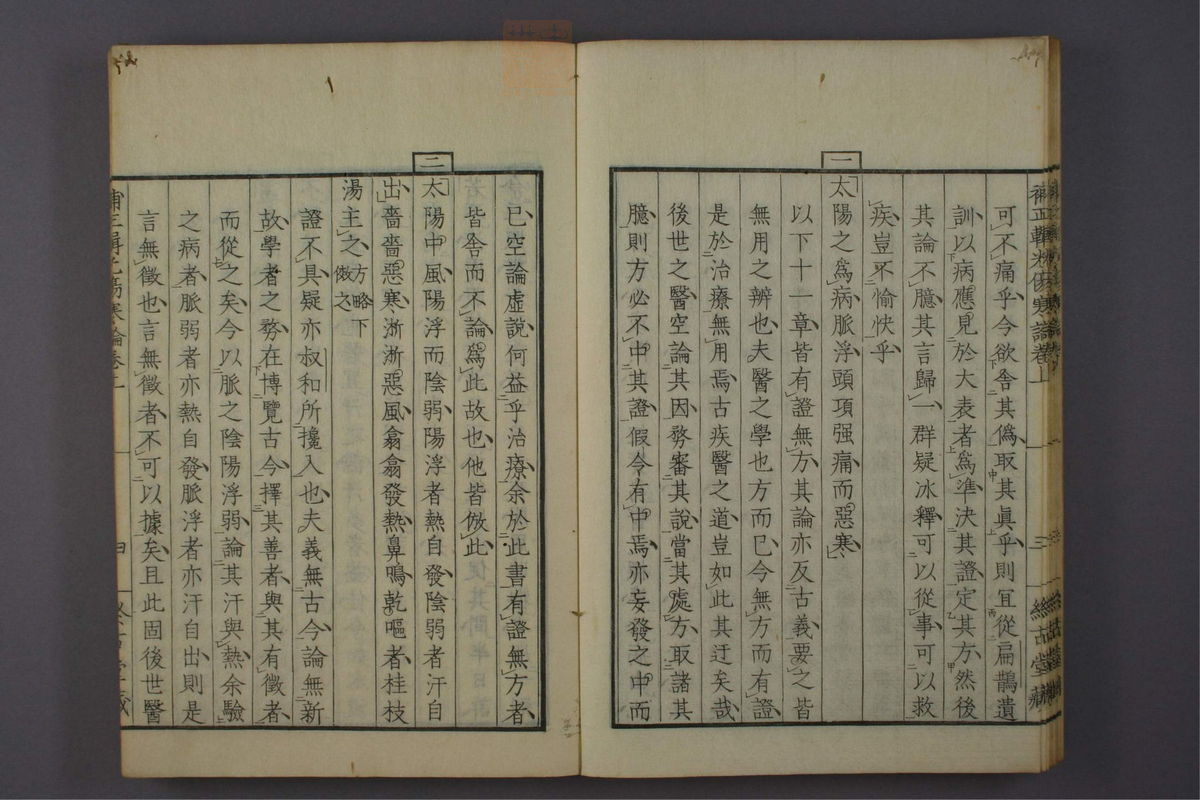 補正輯光傷寒論卷上 三 絲古堂藏
可不痛乎今欲舍其僞取其眞乎則宜從扁鵲遺
訓以病應見於大表者爲準決其證定其方然後
其論不臆其言歸一群疑冰釋可以從事可以救
疾豈不愉快乎
一
太陽之爲病脈浮頭項强痛而惡寒
以下十一章皆有證無方其論亦反古義要之皆
無用之辨也夫醫之學也方而已今無方而有證
是於治療無用焉古疾醫之道豈如此其迂矣哉
後世之醫空論其因務審其說當其處方取諸其
臆則方必不中其證假令有中焉亦妄發之中而
已空論虛說何益乎治療余於此書有證無方者
皆舍而不論爲此故也他皆倣此
二
太陽中風陽浮而陰弱陽浮者熱自發陰弱者汗自
出嗇嗇惡寒淅淅惡風翕翕發熱鼻鳴乾嘔者桂枝
湯主之方略下倣之
證不具疑亦叔和所攙入也夫義無古今論無新
故學者之務在博覽古今擇其善者與其有徵者
而從之矣今以脈之陰陽浮弱論其汗與熱余驗
之病者脈弱者亦熱自發脈浮者亦汗自出則是
言無徵也言無徵者不可以據矣且此固後世醫
補正輯光傷寒論卷上 四